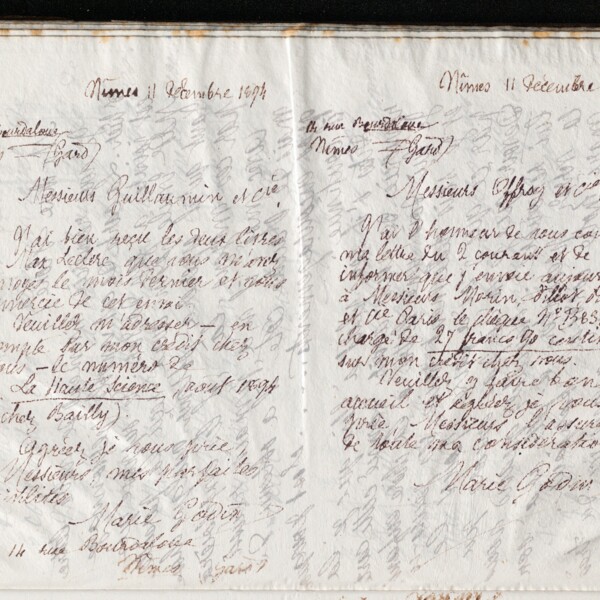 Nîmes 11 décembre 1894
Bourdaloue
(Gard)
Messieurs Guillaumin et Cie
J'ai bien reçu les deux livres
Max Leclerc que vous m'avez
le mois dernier et vous
de cet envoi
Veuillez m'adresser – en
sur mon crédit chez
– le numéro de
La Haute Science, août 1894
(chez Bailly).
Agréez je vous prie
Messieurs mes parfaites
Marie Godin
14 rue Bourdaloue
Nîmes Gard
Nîmes 11 décembre
14 rue Bourdaloue
Nîmes (Gard)
Messieurs Offroy et Cie
J'ai l'honneur de vous
ma lettre du 2 courant et de
informer que j'envoie
à Messieurs Morin,
et Cie Paris le chèque No
chargé de 27 francs 90
sur mon crédit chez vous.
Veuillez y faire bon
accueil et agréer je vous
prie Messieurs
de toute ma considération
Marie Godin